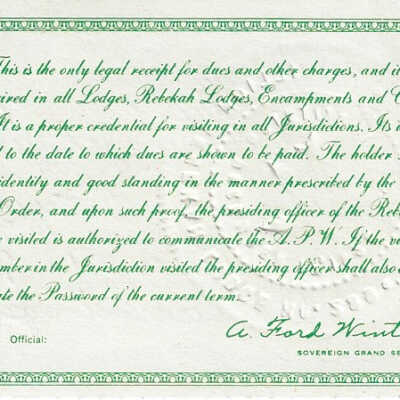 This is the only legal receipt for dues and other charges, and i
ired in all Lodges, Rebekah Lodges, Encampments and C
It is a proper credential for visiting in all Jurisdictions. Its i
to the date to which dues are shown to be paid. The holder
identity and good standing in the manner prescribed by the
Order, and upon such proof, the presiding officer of the Reb
visited is authorized to communicate the A. P. W. If the vi
mber in the Jurisdiction visited the presiding officer shall also
te the Password of the current term.
Official:
A. Ford Wint
SOVEREIGN GRAND SE